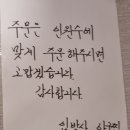 주문은 인원수에
맞게 주문 해주시면
고맙겠습니다.
감사합니다.